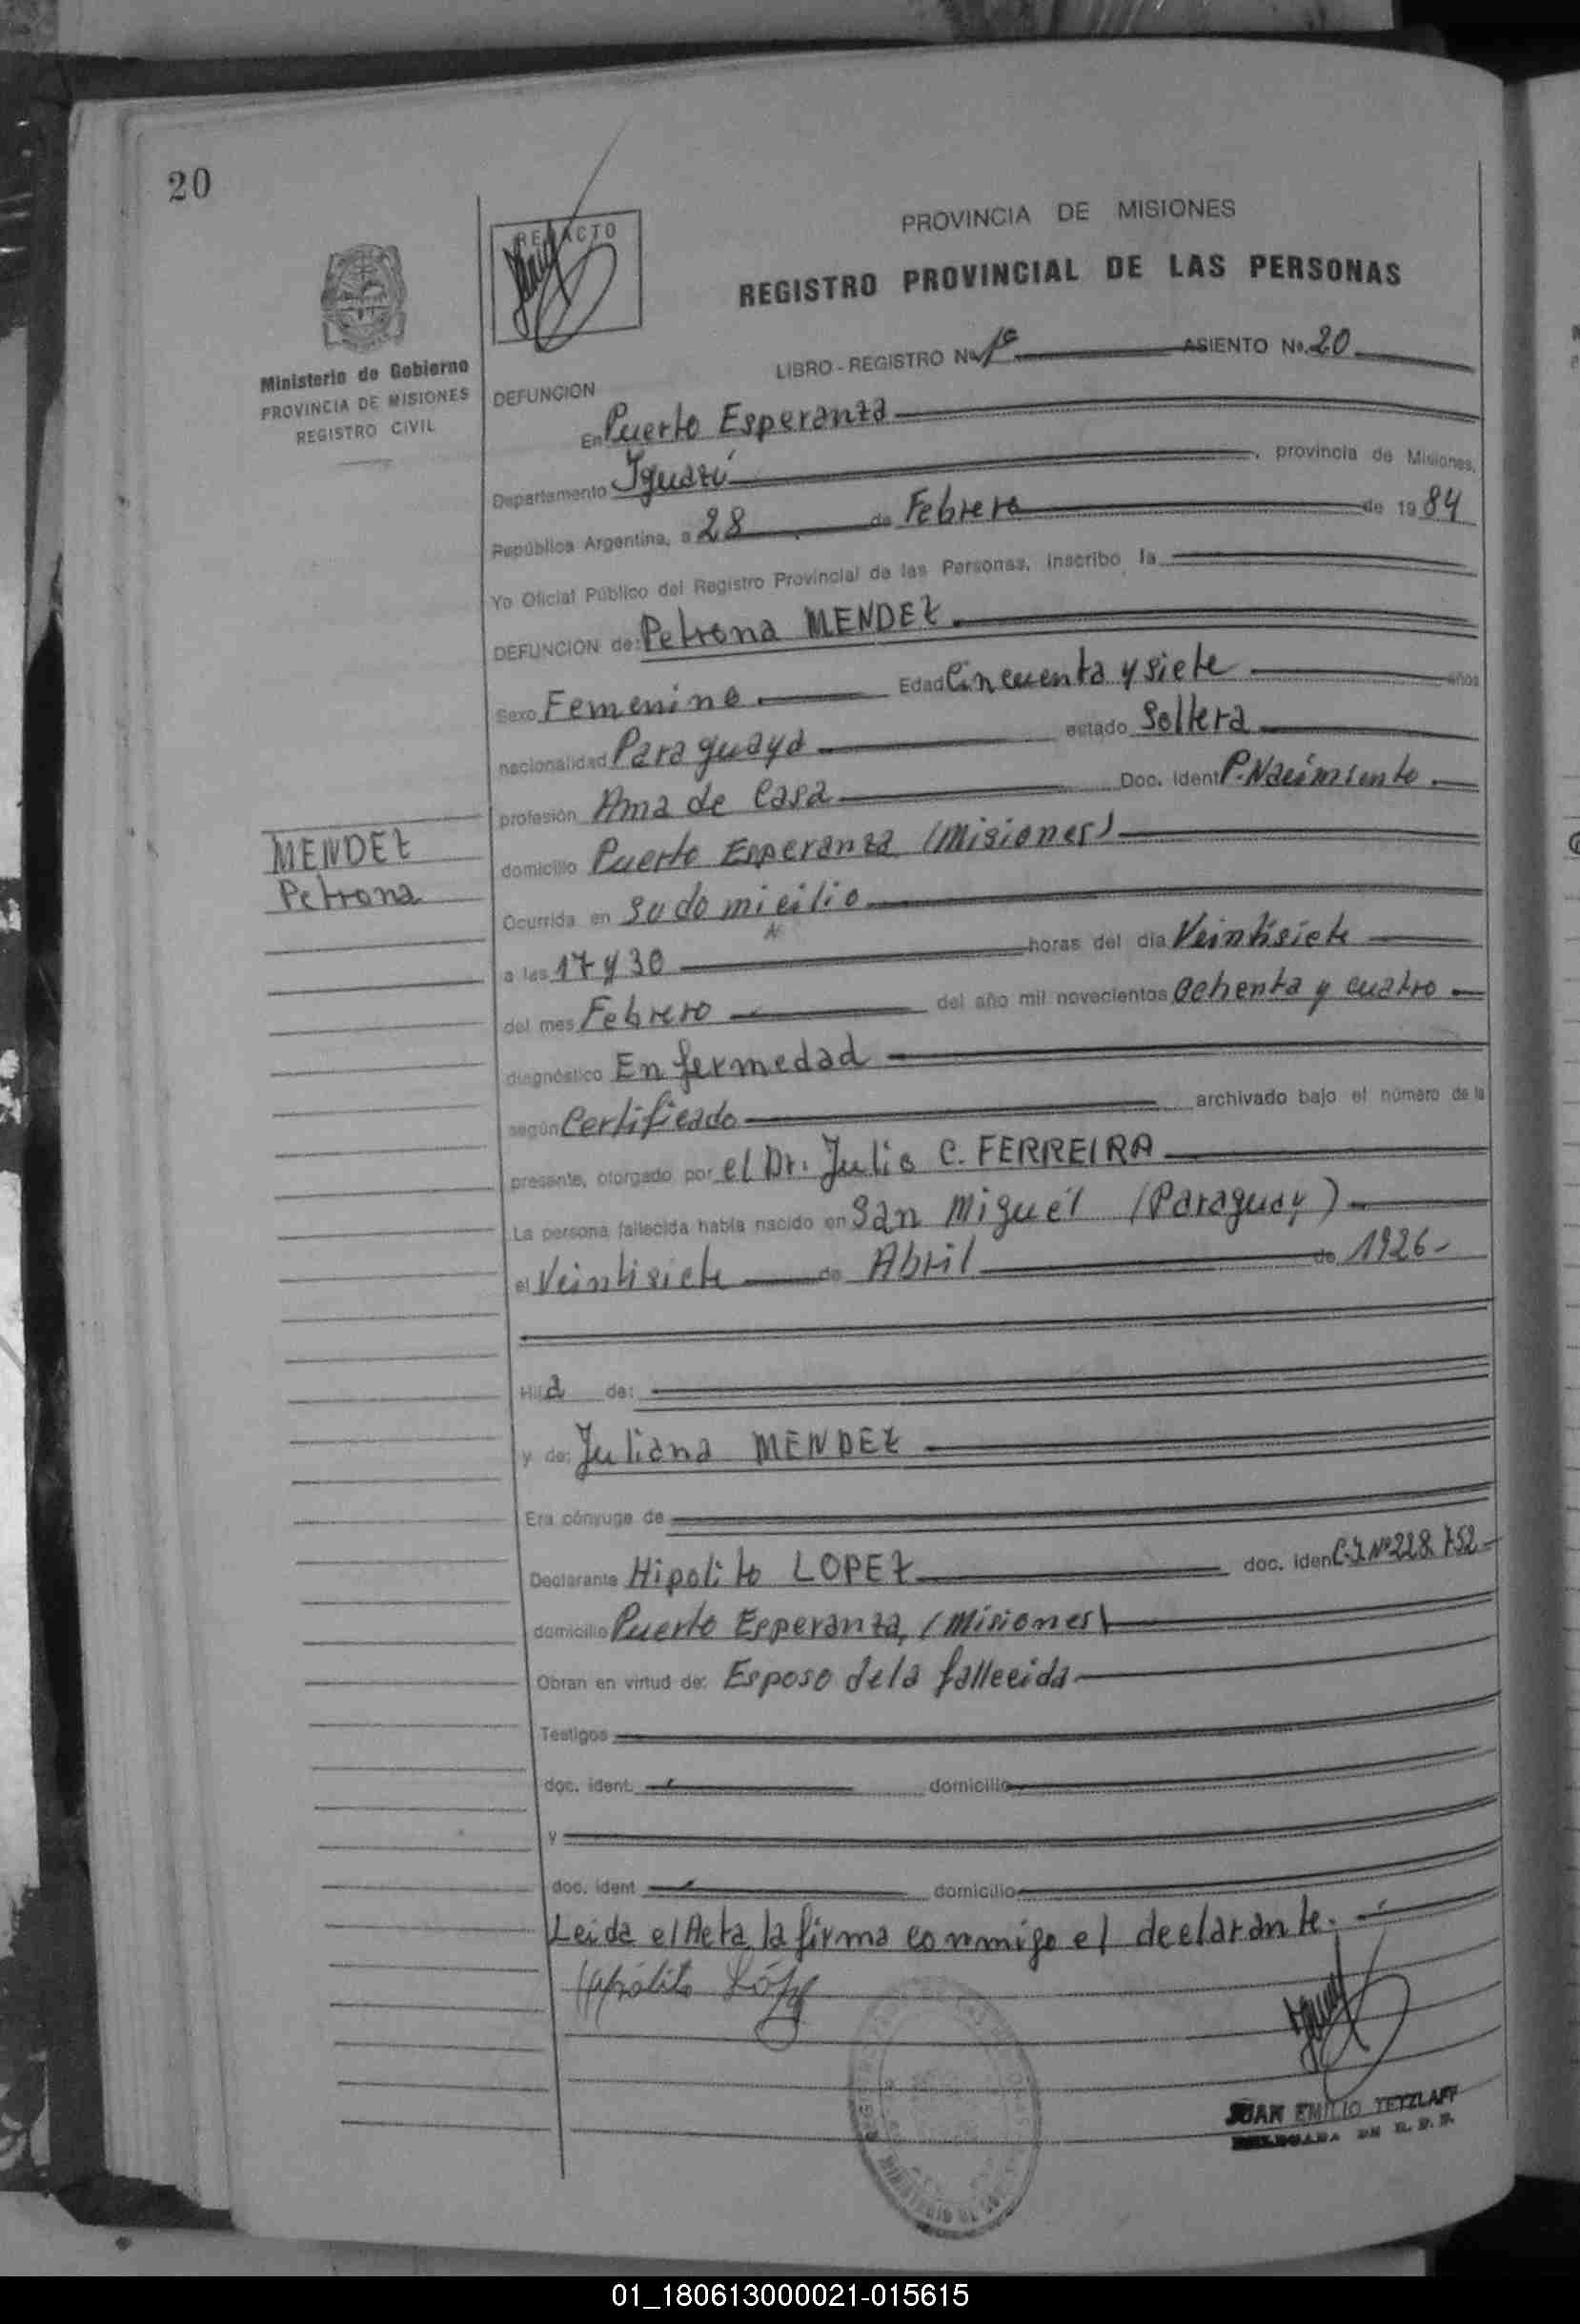 20
RE ACTO
PROVINCIA DE MISIONES
REGISTRO PROVINCIAL DE LAS PERSONAS
Ministerio de Gobierno
PROVINCIA DE MISIONES
REGISTRO CIVIL
LIBRO - REGISTRO No. 1º ASIENTO No. 20
DEFUNCION
En Puerto Esperanza
Departamento Iguazú, provincia de Misiones,
República Argentina, a 28 de Febrero de 1984
Yo Oficial Público del Registro Provincial de las Personas, inscribo la
DEFUNCION de: Petrona MENDEZ
Sexo Femenino Edad Cincuenta y siete años
nacionalidad Paraguaya estado Soltera
profesión Ama de Casa Doc. Ident P. Nacimiento
MENDEZ
Petrona
domicilio Puerto Esperanza (Misiones)
Ocurrida en su domicilio
a las 17 y 30 horas del día Veintisiete
del mes Febrero del año mil novecientos Ochenta y cuatro
diagnóstico Enfermedad
según Certificado archivado bajo el número de la
presente, otorgado por el Dr. Julio C. FERREIRA
La persona fallecida había nacido en San Miguel (Paraguay)
el Veintisiete de Abril de 1926-
Hija de:
y de: Juliana MENDEZ
Era cónyuge de
Declarante Hipolito LOPEZ doc. iden C.I Nº 228.752-
domicilio Puerto Esperanza, (Misiones)
Obran en virtud de: Esposo de la fallecida
Testigos
doc. ident. domicilio
y
doc. ident domicilio
Leida el Acta la firma conmigo el declarante.
Hipólito López
JUAN EMILIO TETZLAFF
01_180613000021-015615